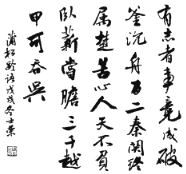 有志者事竟成破
釜沉舟百二秦關終
屬楚苦心人天不負
臥薪嘗膽三千越
甲可吞吳
蒲松齡語戊戌冬士榮